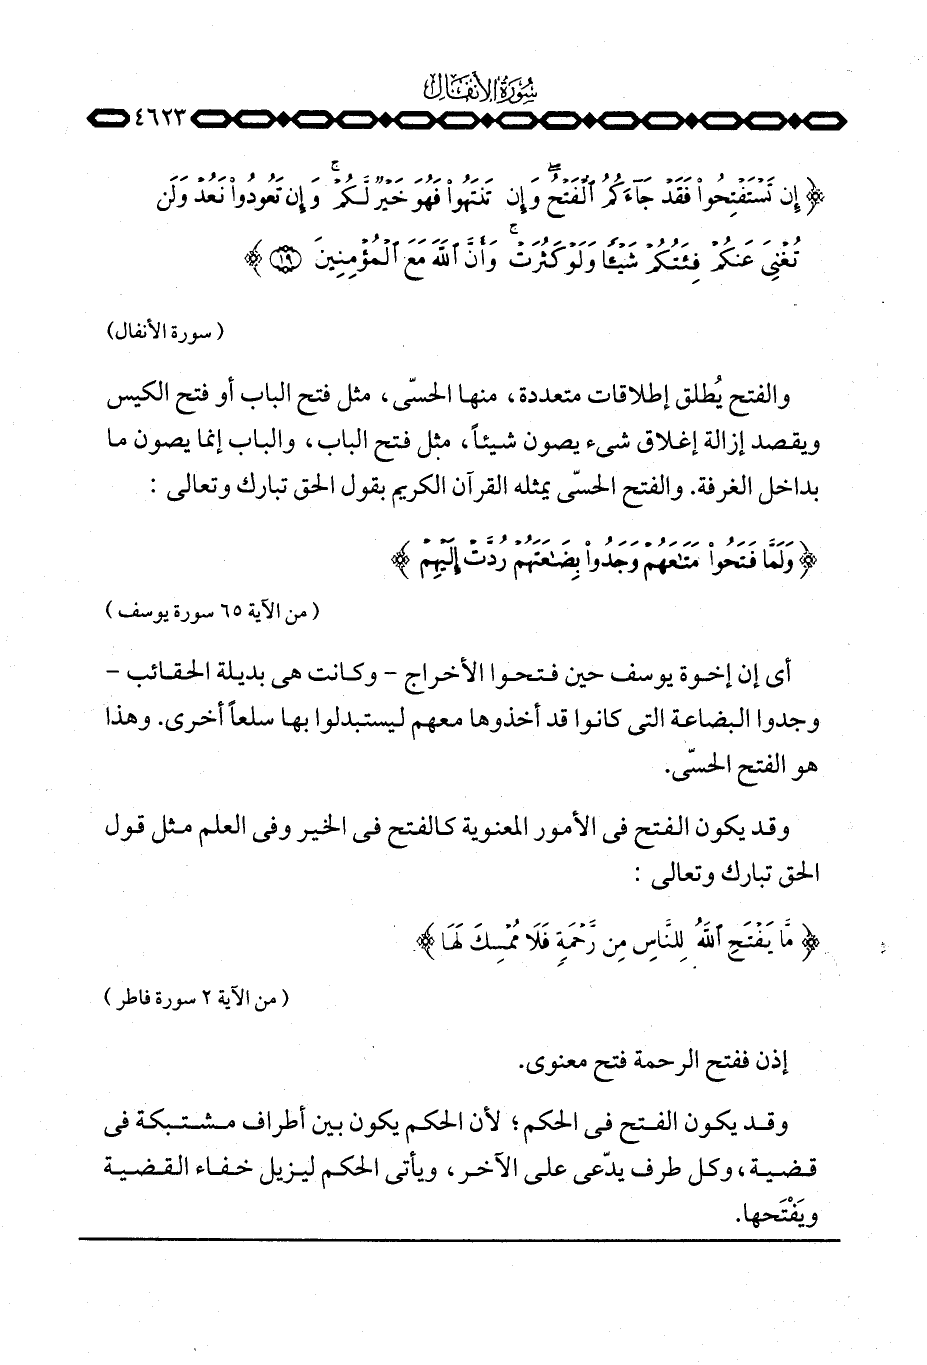 سورة الأنفال
٤٦٢٣
﴿ إِن تَسْتَفْتِحُوا۟ فَقَدْ جَآءَكُمُ ٱلْفَتْحُ ۖ وَإِن تَنتَهُوا۟ فَهُوَ خَيْرٌ لَّكُمْ ۚ وَإِن تَعُودُوا۟ نَعُدْ وَلَن
تُغْنِىَ عَنكُمْ فِئَتُكُمْ شَيْـًٔا وَلَوْ كَثُرَتْ ۚ وَأَنَّ ٱللَّهَ مَعَ ٱلْمُؤْمِنِينَ ١٩ ﴾
( سورة الأنفال)
والفتح يُطلق إطلاقات متعددة، منها الحسّى، مثل فتح الباب أو فتح الكيس
ويقصد إزالة إغلاق شىء يصون شيئاً، مثل فتح الباب، والباب إنما يصون ما
بداخل الغرفة. والفتح الحسّى يمثله القرآن الكريم بقول الحق تبارك وتعالى :
﴿ وَلَمَّا فَتَحُوا۟ مَتَٰعَهُمْ وَجَدُوا۟ بِضَٰعَتَهُمْ رُدَّتْ إِلَيْهِمْ ﴾
( من الآية ٦٥ سورة يوسف )
أى إن إخوة يوسف حين فتحوا الأخراج - وكانت هى بديلة الحقائب -
وجدوا البضاعة التى كانوا قد أخذوها معهم ليستبدلوا بها سلعاً أخرى. وهذا
هو الفتح الحسّى.
وقد يكون الفتح فى الأمور المعنوية كالفتح فى الخير وفى العلم مثل قول
الحق تبارك وتعالى :
﴿ مَّا يَفْتَحِ ٱللَّهُ لِلنَّاسِ مِن رَّحْمَةٍ فَلَا مُمْسِكَ لَهَا ﴾
( من الآية ٢ سورة فاطر )
إذن ففتح الرحمة فتح معنوى.
وقد يكون الفتح فى الحكم؛ لأن الحكم يكون بين أطراف مشتبكة فى
قضية، وكل طرف يدّعى على الآخر، ويأتى الحكم ليزيل خفاء القضية
ويَفْتَحها.